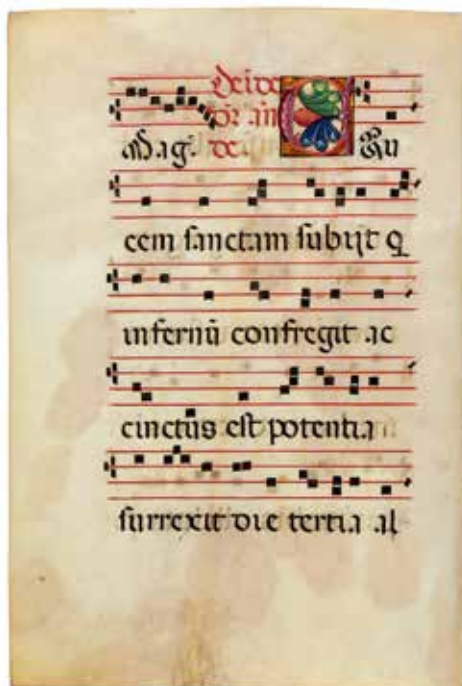 Dei de
dr̄ añ
Mag. de. CRu
cem sanctam subijt q
infernū confregit ac
cinctus est potentia
surrexit die tertia al